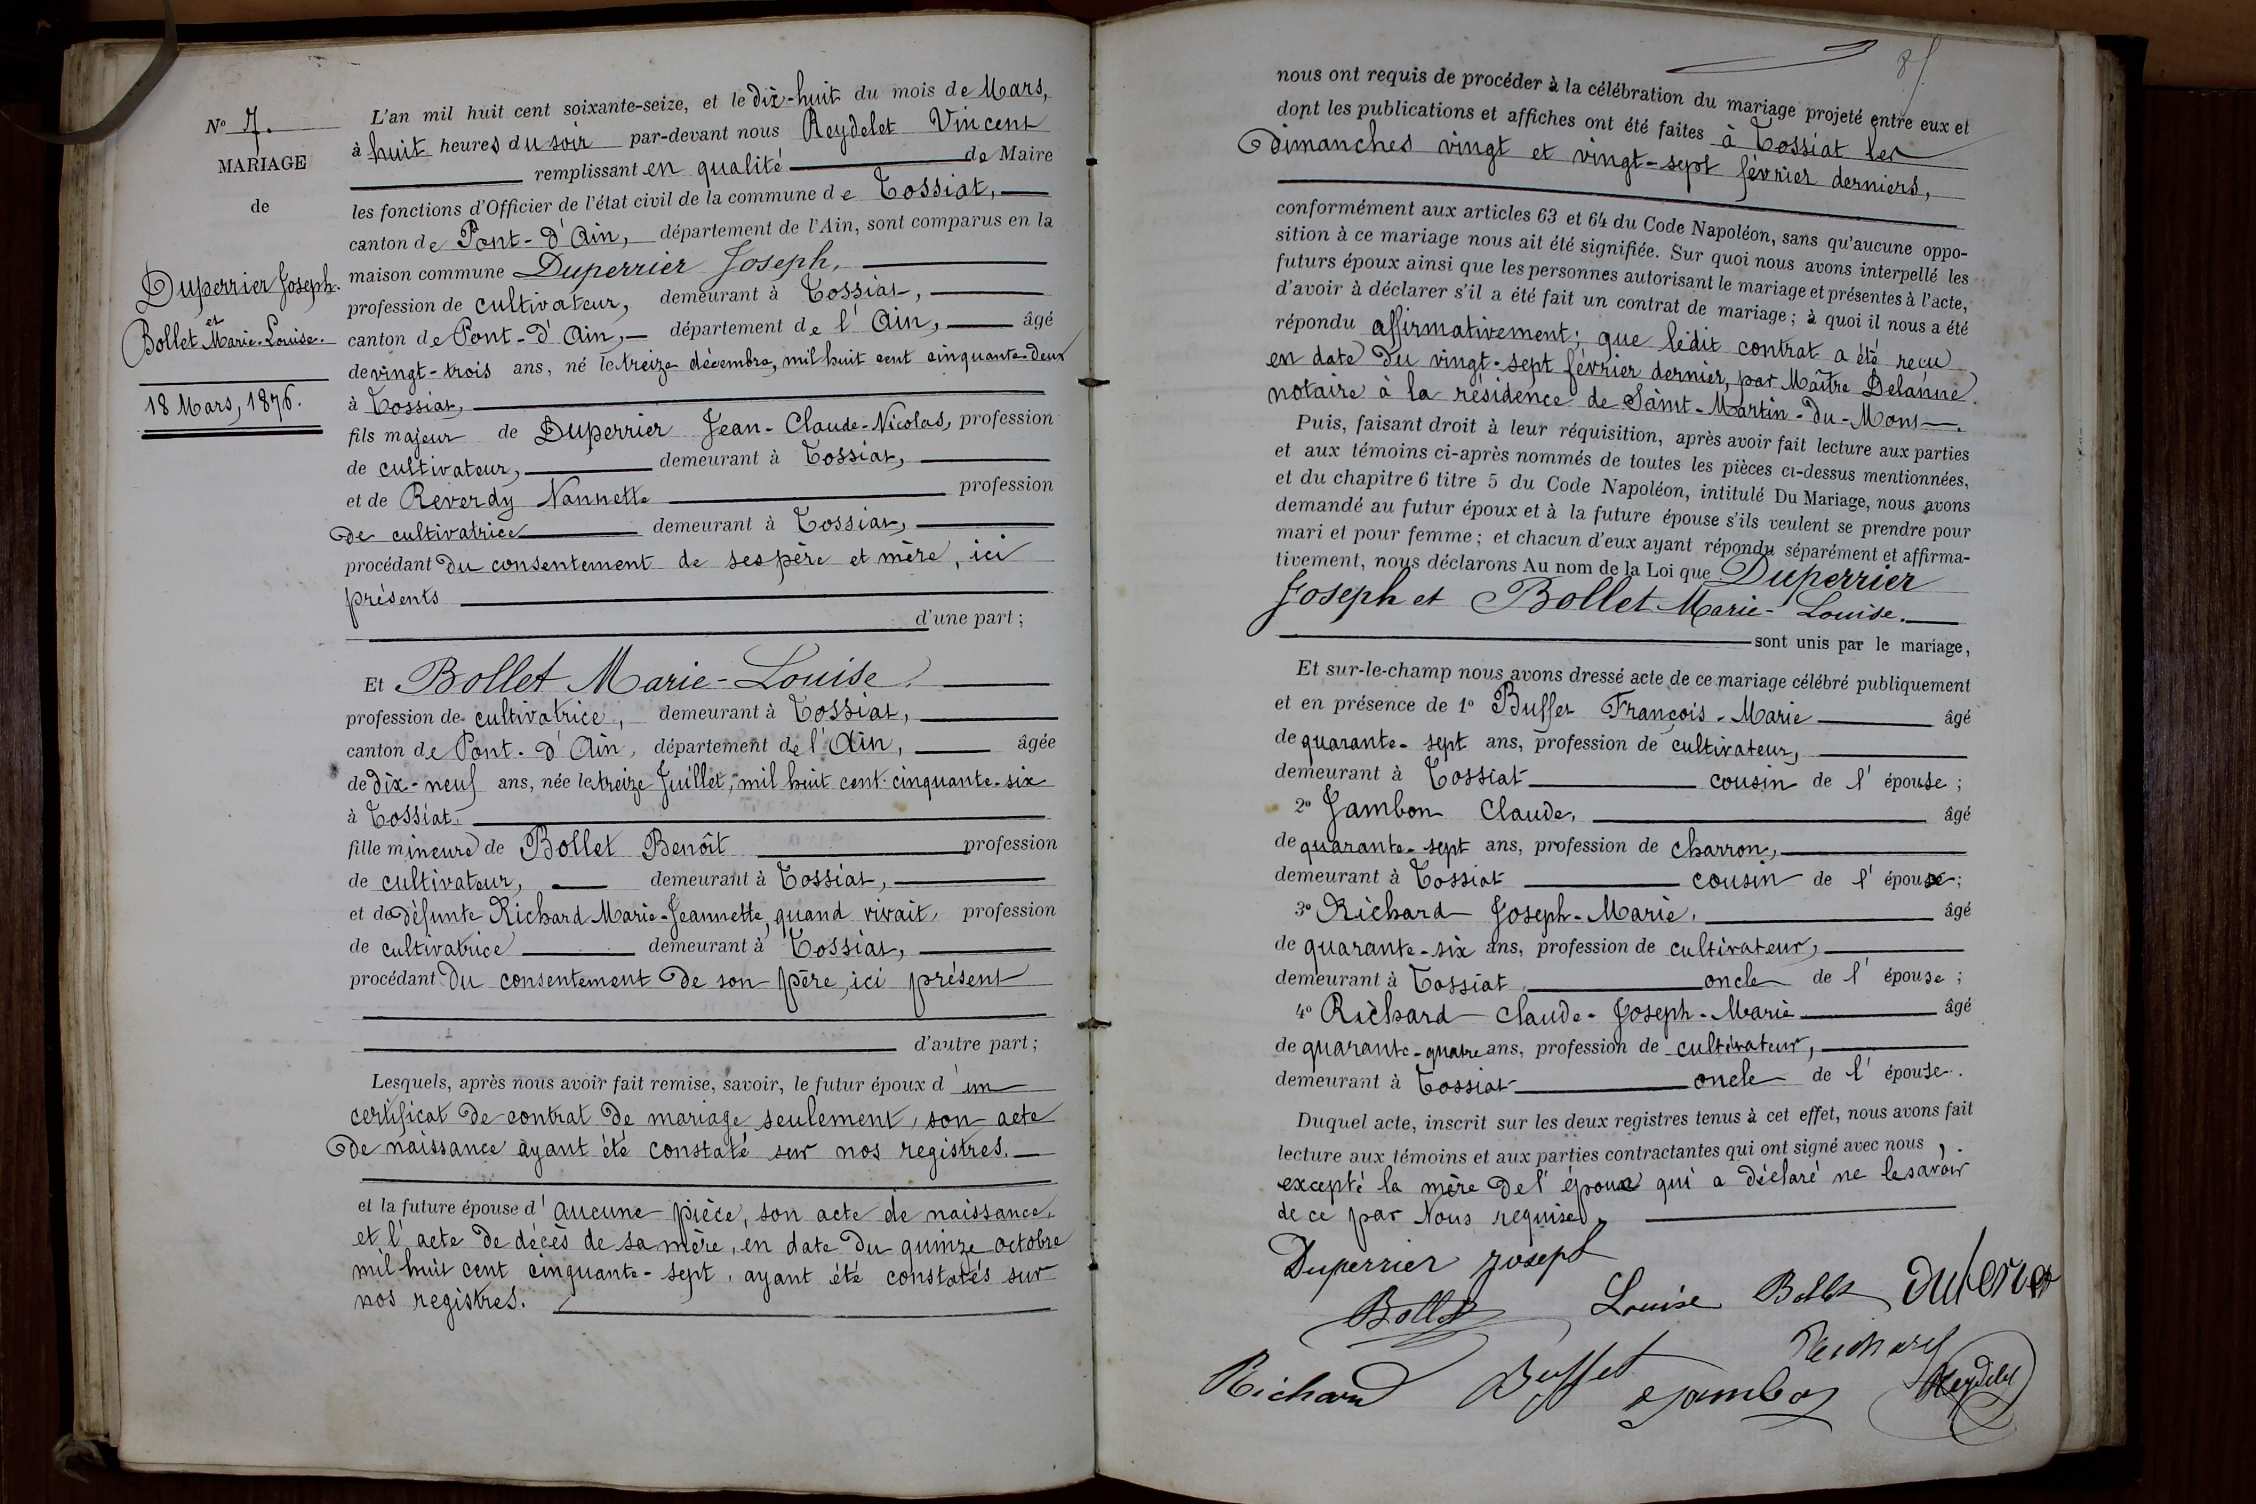 N° 7.
MARIAGE
de
Duperrier Joseph.
et
Bollet Marie-Louise.
18 Mars, 1876.
L'an mil huit cent soixante-seize, et le dix-huit du mois de Mars,
à huit heures du soir par-devant nous Reydelet Vincent
remplissant en qualité de Maire
les fonctions d'Officier de l'état civil de la commune de Tossiat,
canton de Pont-d'Ain, département de l'Ain, sont comparus en la
maison commune Duperrier Joseph,
profession de cultivateur, demeurant à Tossiat,
canton de Pont-d'Ain, département de l'Ain, âgé
de vingt-trois ans, né le treize décembre, mil huit cent cinquante-deux
à Tossiat,
fils majeur de Duperrier Jean-Claude-Nicolas, profession
de cultivateur, demeurant à Tossiat,
et de Reverdy Nannette profession
de cultivatrice demeurant à Tossiat,
procédant du consentement de ses père et mère, ici
présents
d'une part;
Et Bollet Marie-Louise,
profession de cultivatrice, demeurant à Tossiat,
canton de Pont-d'Ain, département de l'Ain, âgée
de dix-neuf ans, née le treize Juillet, mil huit cent cinquante-six
à Tossiat.
fille mineure de Bollet Benoît profession
de cultivateur, demeurant à Tossiat,
et de défunte Richard Marie-Jeannette, quand vivait, profession
de cultivatrice demeurant à Tossiat,
procédant du consentement de son père, ici présent
d'autre part;
Lesquels, après nous avoir fait remise, savoir, le futur époux d'un
certificat de contrat de mariage seulement, son acte
de naissance ayant été constaté sur nos registres.
et la future épouse d'aucune pièce, son acte de naissance,
et l'acte de décès de sa mère, en date du quinze octobre
mil huit cent cinquante-sept, ayant été constatés sur
nos registres.
nous ont requis de procéder à la célébration du mariage projeté entre eux et
dont les publications et affiches ont été faites à Tossiat les
dimanches vingt et vingt-sept février derniers,
conformément aux articles 63 et 64 du Code Napoléon, sans qu'aucune oppo-
sition à ce mariage nous ait été signifiée. Sur quoi nous avons interpellé les
futurs époux ainsi que les personnes autorisant le mariage et présentes à l'acte,
d'avoir à déclarer s'il a été fait un contrat de mariage; à quoi il nous a été
répondu affirmativement; que ledit contrat a été reçu
en date du vingt-sept février dernier, par Maître Delanne
notaire à la résidence de Saint-Martin-du-Mont.
Puis, faisant droit à leur réquisition, après avoir fait lecture aux parties
et aux témoins ci-après nommés de toutes les pièces ci-dessus mentionnées,
et du chapitre 6 titre 5 du Code Napoléon, intitulé Du Mariage, nous avons
demandé au futur époux et à la future épouse s'ils veulent se prendre pour
mari et pour femme; et chacun d'eux ayant répondu séparément et affirma-
tivement, nous déclarons Au nom de la Loi que Duperrier
Joseph et Bollet Marie-Louise.
sont unis par le mariage,
Et sur-le-champ nous avons dressé acte de ce mariage célébré publiquement
et en présence de 1° Buffet François-Marie âgé
de quarante-sept ans, profession de cultivateur,
demeurant à Tossiat cousin de l'épouse;
2° Jambon Claude, âgé
de quarante-sept ans, profession de charron,
demeurant à Tossiat cousin de l'époux;
3° Richard Joseph-Marie, âgé
de quarante-six ans, profession de cultivateur,
demeurant à Tossiat oncle de l'épouse;
4° Richard Claude-Joseph-Marie âgé
de quarante-quatre ans, profession de cultivateur,
demeurant à Tossiat oncle de l'épouse.
Duquel acte, inscrit sur les deux registres tenus à cet effet, nous avons fait
lecture aux témoins et aux parties contractantes qui ont signé avec nous,
excepté la mère de l'époux qui a déclaré ne le savoir
de ce par Nous requise.
Duperrier Joseph
Bollet Louise Bollet
Richard
Richard Buffet Jambon Reydelet